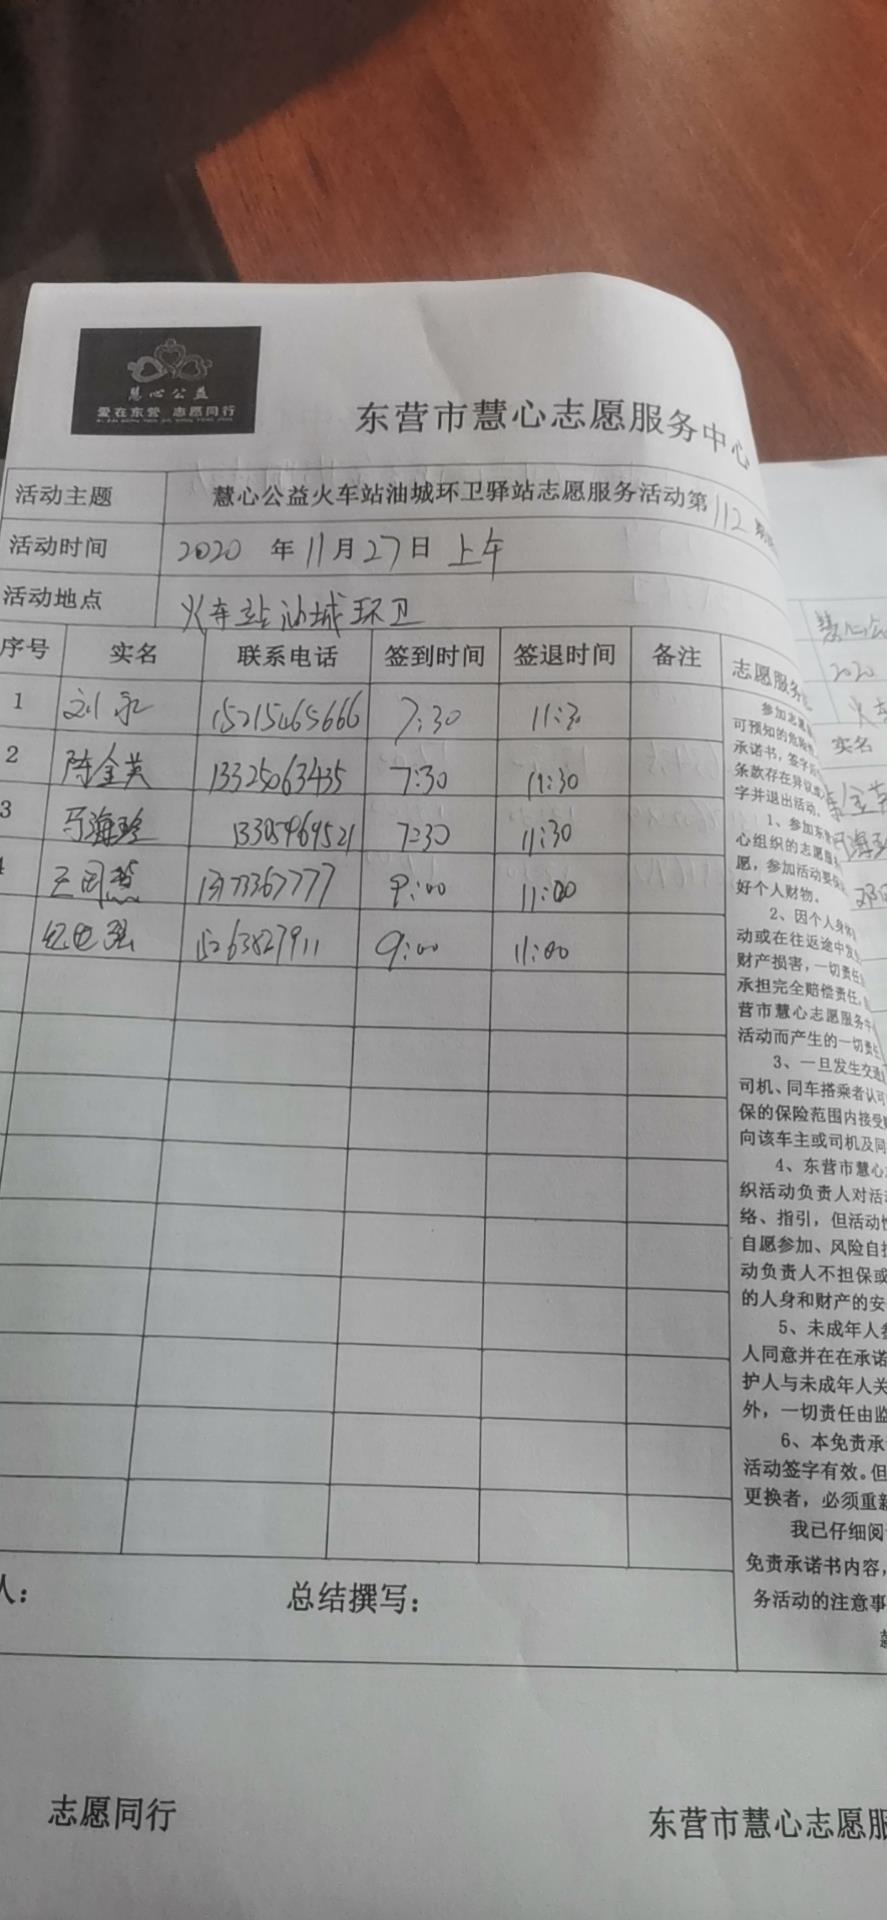 慧心公益
爱在东营 志愿同行
东营市慧心志愿服务中心
活动主题 慧心公益火车站油城环卫驿站志愿服务活动第112期
活动时间 2020年11月27日上午
活动地点 火车站油城环卫
序号 实名 联系电话 签到时间 签退时间 备注 志愿服务
1 刘永 15215465666 7:30 11:30
2 陈金英 13325063435 7:30 11:30
3 马海珍 13305469521 7:30 11:30
4 王国慧 9:00 11:00
15263827911 9:00 11:00
参加志愿
可预知的危险
承诺书,签字后
条款存在异议或
字并退出活动。
1、参加东营
心组织的志愿服
愿,参加活动要保
好个人财物。
2、因个人身体
动或在往返途中发生
财产损害,一切责任
承担完全赔偿责任,
营市慧心志愿服务中
活动而产生的一切责任
3、一旦发生交通
司机、同车搭乘者认可
保的保险范围内接受
向该车主或司机及同
4、东营市慧心
织活动负责人对活动
络、指引,但活动
自愿参加、风险自担
动负责人不担保或
的人身和财产的安
5、未成年人参
人同意并在在承诺
护人与未成年人关
外,一切责任由监
6、本免责承
活动签字有效。但
更换者,必须重新
我已仔细阅
免责承诺书内容,
务活动的注意事
人: 总结撰写:
志愿同行 东营市慧心志愿服
慧心公
2020
火车
实名
陈金英
马海珍